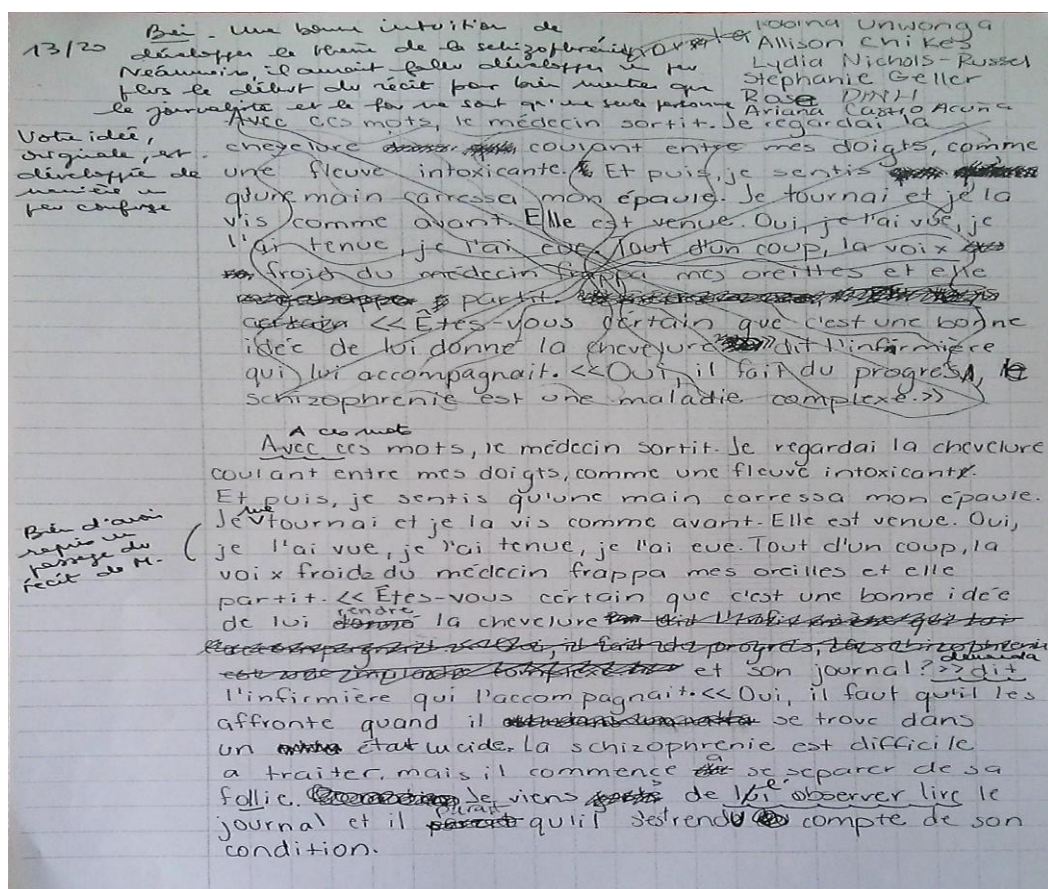 13/20
Bei - Une bonne intuition de
développer le thème de la schizophrénie
Néanmoins, il aurait fallu développer un peu
plus le début du récit pour bien montrer que
le journaliste et le fou ne sont qu'une seule personne
Votre idée,
originale, est
développée de
manière un
peu confuse
Unwonga
Allison Chikes
Lydia Nichols-Russel
Stephanie Geller
Rose DINH
Ariana Castro Acuna
Avec ces mots, le médecin sortit. Je regardai la
chevelure coulant entre mes doigts, comme
une fleuve intoxicante. Et puis, je sentis
qu'une main carressa mon épaule. Je tournai et je la
vis comme avant. Elle est venue. Oui, je l'ai vue, je
l'ai tenue, je l'ai eue. Tout d'un coup, la voix
froid du médecin frappa mes oreilles et elle
partit.
certain << Êtes-vous certain que c'est une bonne
idée de lui donne la chevelure >> dit l'infirmière
qui lui accompagnait. << Oui, il fait du progress, la
schizophrenie est une maladie complexe. >>
A ces mots
Avec ces mots, le médecin sortit. Je regardai la chevelure
coulant entre mes doigts, comme une fleuve intoxicante.
Et puis, je sentis qu'une main carressa mon épaule.
me
Je tournai et je la vis comme avant. Elle est venue. Oui,
je l'ai vue, je l'ai tenue, je l'ai eue. Tout d'un coup, la
voix froide du médecin frappa mes oreilles et elle
partit. << Êtes-vous certain que c'est une bonne idée
rendre
de lui donné la chevelure
et son journal? >> dit
demanda
l'infirmière qui l'accompagnait. << Oui, il faut qu'il les
affronte quand il se trove dans
un état lucide. La schizophrenie est difficile
a traiter, mais il commence à se séparer de sa
follie. Je viens de l'observer lire le
paraît
journal et il qu'il s'est rendu compte de son
condition.
Bien d'avoir
repris un
passage du
récit de M.